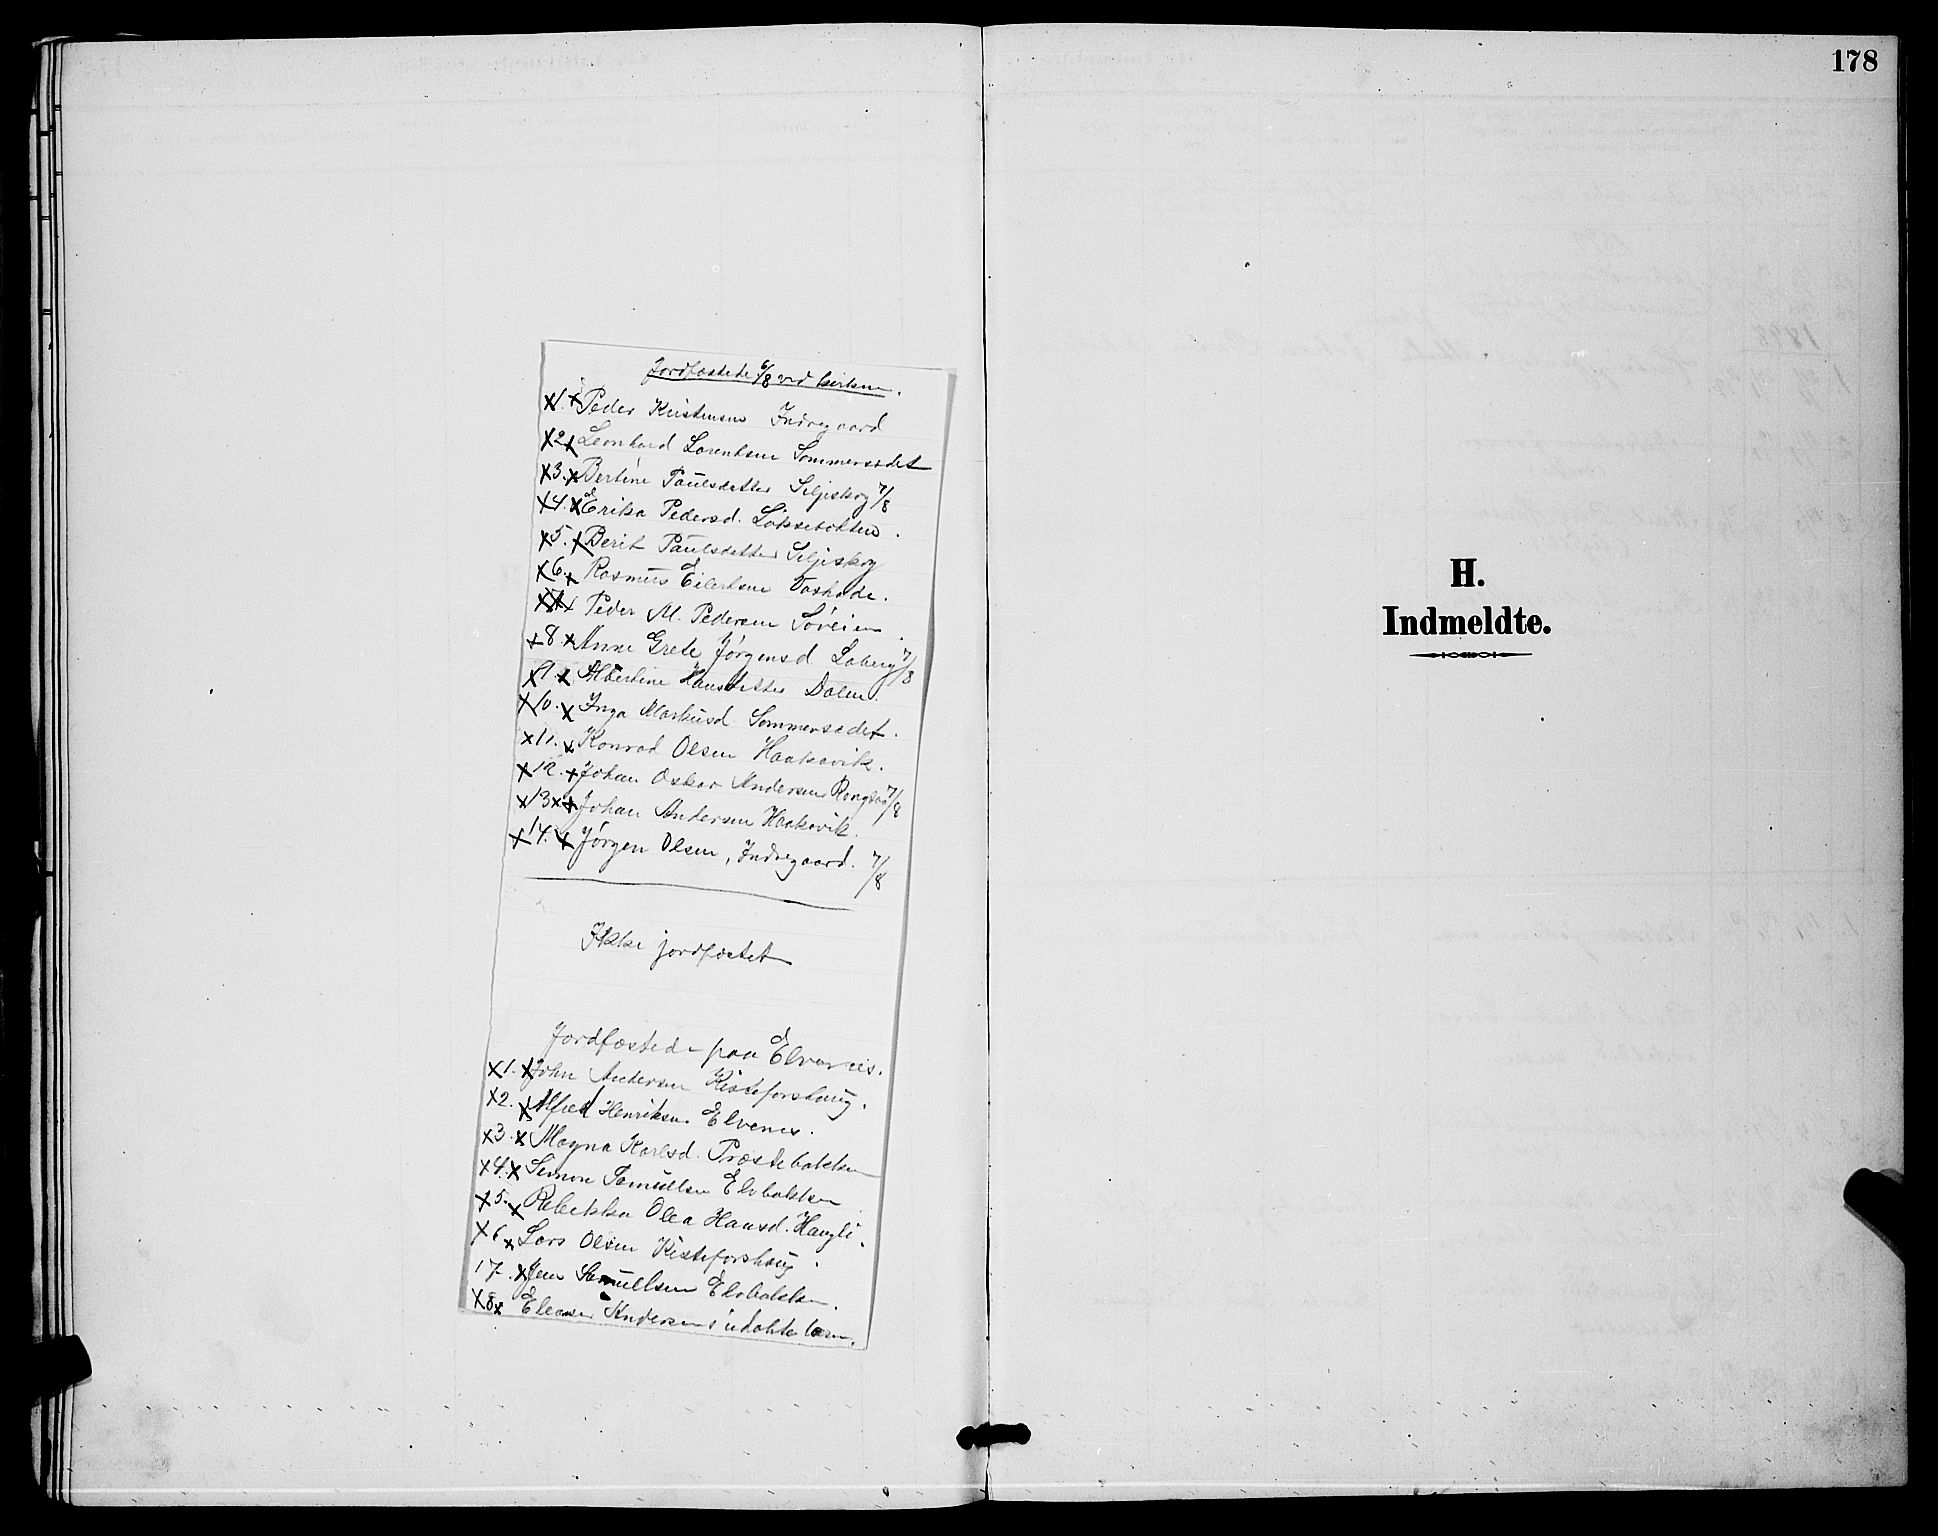 Jordfæstede 6/8 ved kirken.
X1. x Peder Kristensen Indregaard
X2 x Leonhard Lorentsen Sommersædet
X3. x Bertine Paulsdatter Siljeskog 7/8
X4. x Erika Pedersd. Løksebotten.
X5. x Berit Paulsdatter Siljeskog
X6. x Rasmus Eilertsen
x Peder M. Pedersen Løveien.
x8 x Anne Grete Jørgensd. Loberg 7/8
x9. x Albertine Hansdatter Dalen.
X10. x Inga Markusd. Sommersædet.
x11. x Konrad Olsen Haakavik.
x12. x Johan Oskar Andersen 7/8
x13 x x Johan Andersen Haakavik.
x14. x Jørgen Olsen, Indregaard. 7/8
Ikke jordfæstet
Jordfæstede paa Elvenes.
X1. x John Andersen Kisteforshaug.
X2. x Alfred Henriksen Elvenes.
x3. x Magna Karlsd. Præstebakken
x4. x Simon Samuelsen Elvebakken
x5. x Rebekka Olea Hansd. Haugli.
x6 x Lars Olsen Kisteforshaug.
17. x Jens Samuelsen Elvebakken.
X8 x Eleaser Andersens udøbte barn.
178
H.
Indmeldte.